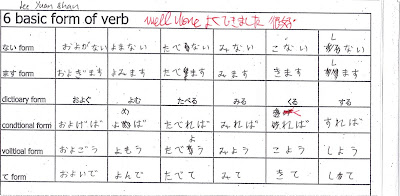 Lee Yuan Shan
6 basic form of verb well done よくできました 很好
ない form およがない よまない たべない みない こない しない
ます form およぎます よみます たべます みます きます します
dictioary form およぐ よむ たべる みる くる する
condtional form およげば よめば たべれば みれば くれば すれば
volitioal form およごう よもう たべよう みよう こよう しよう
て form およいで よんで たべて みて きて して